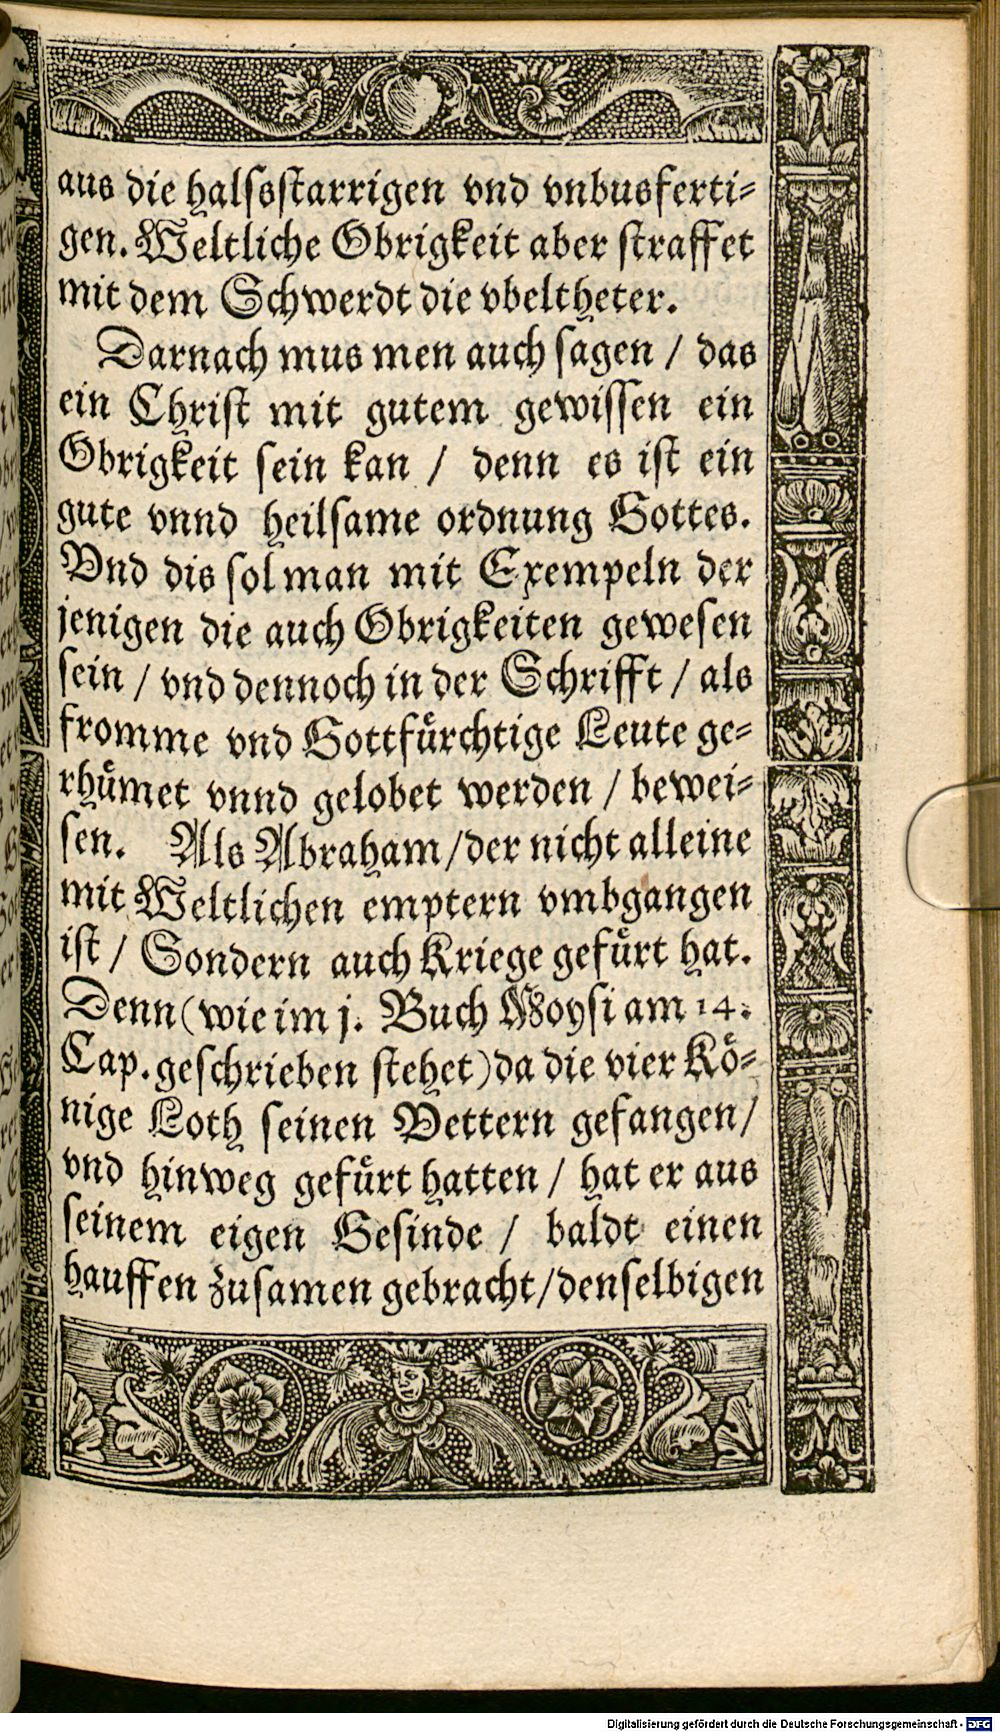 aus die halsſtarrigen vnd vnbusferti⸗
gen. Weltliche Obrigkeit aber ſtraffet
mit dem Schwerdt die vbeltheter.
Darnach mus men auch ſagen / das
ein Chriſt mit gutem gewiſſen ein
Obrigkeit ſein kan / denn es iſt ein
gute vnnd heilſame ordnung Gottes.
Vnd dis ſol man mit Exempeln der
jenigen die auch Obrigkeiten geweſen
ſein / vnd dennoch in der Schrifft / als
fromme vnd Gottfuͤrchtige Leute ge⸗
rhuͤmet vnnd gelobet werden / bewei⸗
ſen. Als Abraham / der nicht alleine
mit Weltlichen emptern vmbgangen
iſt / Sondern auch Kriege gefuͤrt hat.
Denn (wie im j. Buch Moyſi am 14.
Cap. geſchrieben ſtehet) da die vier Koͤ⸗
nige Loth ſeinen Vettern gefangen /
vnd hinweg gefuͤrt hatten / hat er aus
ſeinem eigen Geſinde / baldt einen
hauffen zuſamen gebracht / denſelbigen
Digitalisierung gefördert durch die Deutsche Forschungsgemeinschaft - DFG